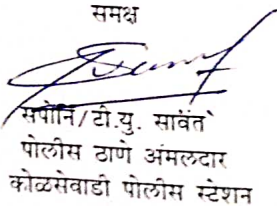 समक्ष
सपोनि/टी.यु. सावंत
पोलीस ठाणे अंमलदार
कोळसेवाडी पोलीस स्टेशन